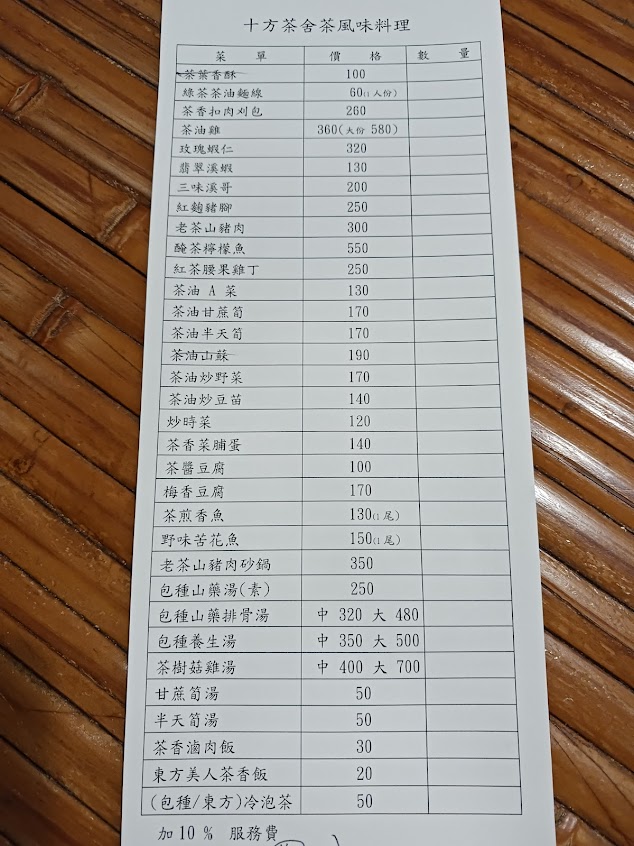 十方茶舍茶風味料理
菜 單 價 格 數 量
茶葉香酥 100
綠茶茶油麵線 60(1人份)
茶香扣肉刈包 260
茶油雞 360(大份 580)
玫瑰蝦仁 320
翡翠溪蝦 130
三味溪哥 200
紅麴豬腳 250
老茶山豬肉 300
醃茶檸檬魚 550
紅茶腰果雞丁 250
茶油 A 菜 130
茶油甘蔗筍 170
茶油半天筍 170
茶油山蘇 190
茶油炒野菜 170
茶油炒豆苗 140
炒時菜 120
茶香菜脯蛋 140
茶醬豆腐 100
梅香豆腐 170
茶煎香魚 130(1尾)
野味苦花魚 150(1尾)
老茶山豬肉砂鍋 350
包種山藥湯(素) 250
包種山藥排骨湯 中 320 大 480
包種養生湯 中 350 大 500
茶樹菇雞湯 中 400 大 700
甘蔗筍湯 50
半天筍湯 50
茶香滷肉飯 30
東方美人茶香飯 20
(包種/東方)冷泡茶 50
加10 % 服務費